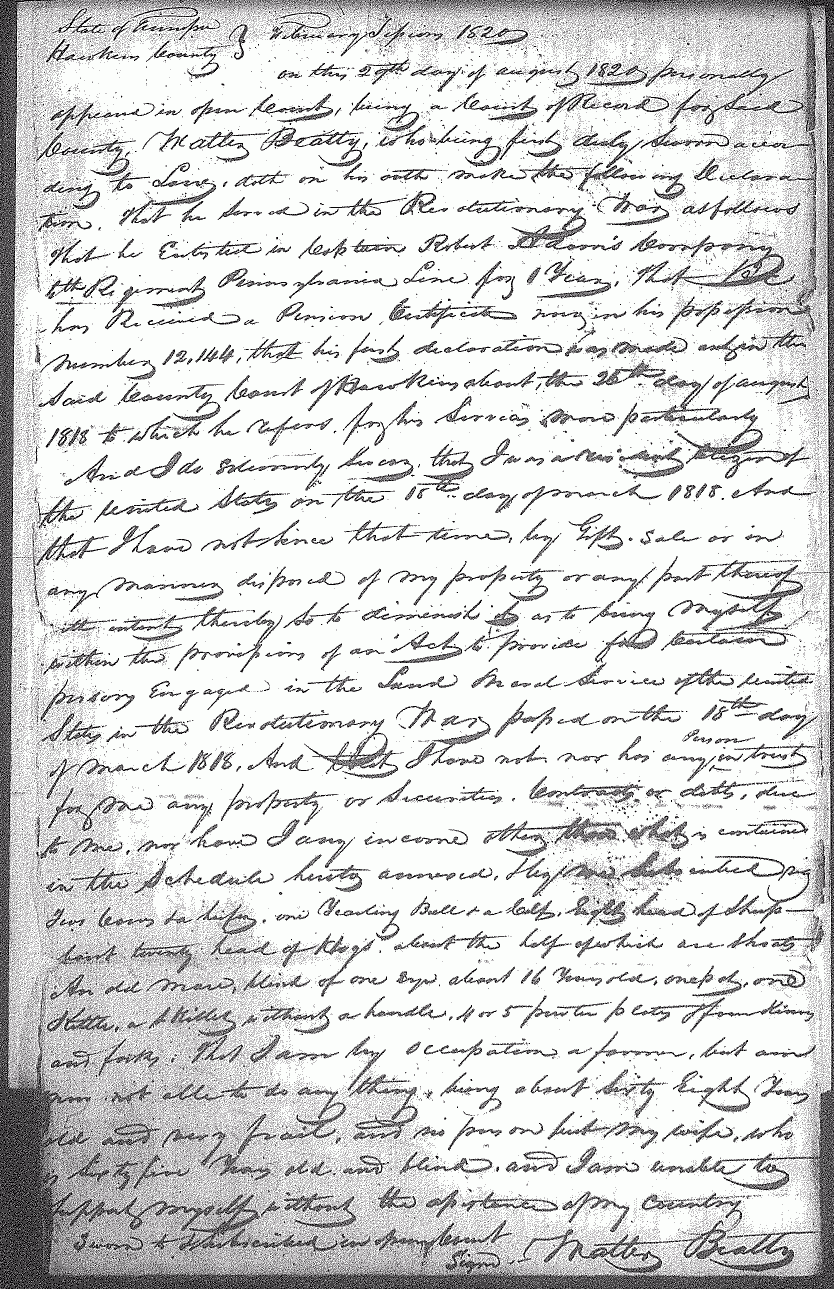 State of Tennessee
Hawkins County } February Sessions 1820
on this 29th day of august 1820 personally
appeared in open Court, being a Court of Record for Said
County, Walter Beatty, who being first duly Sworn accor
ding to Law, doth on his oath make the following Declara
tion. That he Served in the Revolutionary War as follows
that he Enlisted in Captain Robert Adam's Company
6th Regiment Pennsylvania Line for 1 Year, that he
has Received a Pension Certificate now in his possession
Number 12,144, that his first declaration was made in the
Said County Court of Hawkins about, the 26th day of august
1818 to which he refers for his Services more particularly
And I do solemnly Swear, that I was a resident citizen of
the United States on the 18th day of march 1818. And
that I have not since that time, by Gift, Sale or in
any manner disposed of my property or any part thereof
with intent thereby so to diminish it as to bring myself
within the provisions of an Act to provide for Certain
persons Engaged in the Land Naval Service of the United
States in the Revolutionary War passed on the 18th day
of march 1818. And that I have not nor has any Person in trust
for me any property or Securities, Contracts, or debts, due
to me, nor have I any income other than what is contained
in the Schedule hereto annexed, & by me Subscribed viz
Two Cows & a heifer, one Yearling Bull & a Calf, Eight head of Sheep
bout twenty head of Hogs about the half of which are Shoats
An old mare, blind of one Eye about 16 Years old, one pot, one
Kettle, a Skillet without a handle, 4 or 5 pewter plates
and forks; That I am by occupation a farmer, but am
not able to do any thing, being about Sixty Eight Years
old and very frail, and no person but my wife, who
is Sixty five Years old and blind. and I am unable to
Support myself without the assistance of my Country
Sworn to & Subscribed in open Court
Signed Walter Beatty